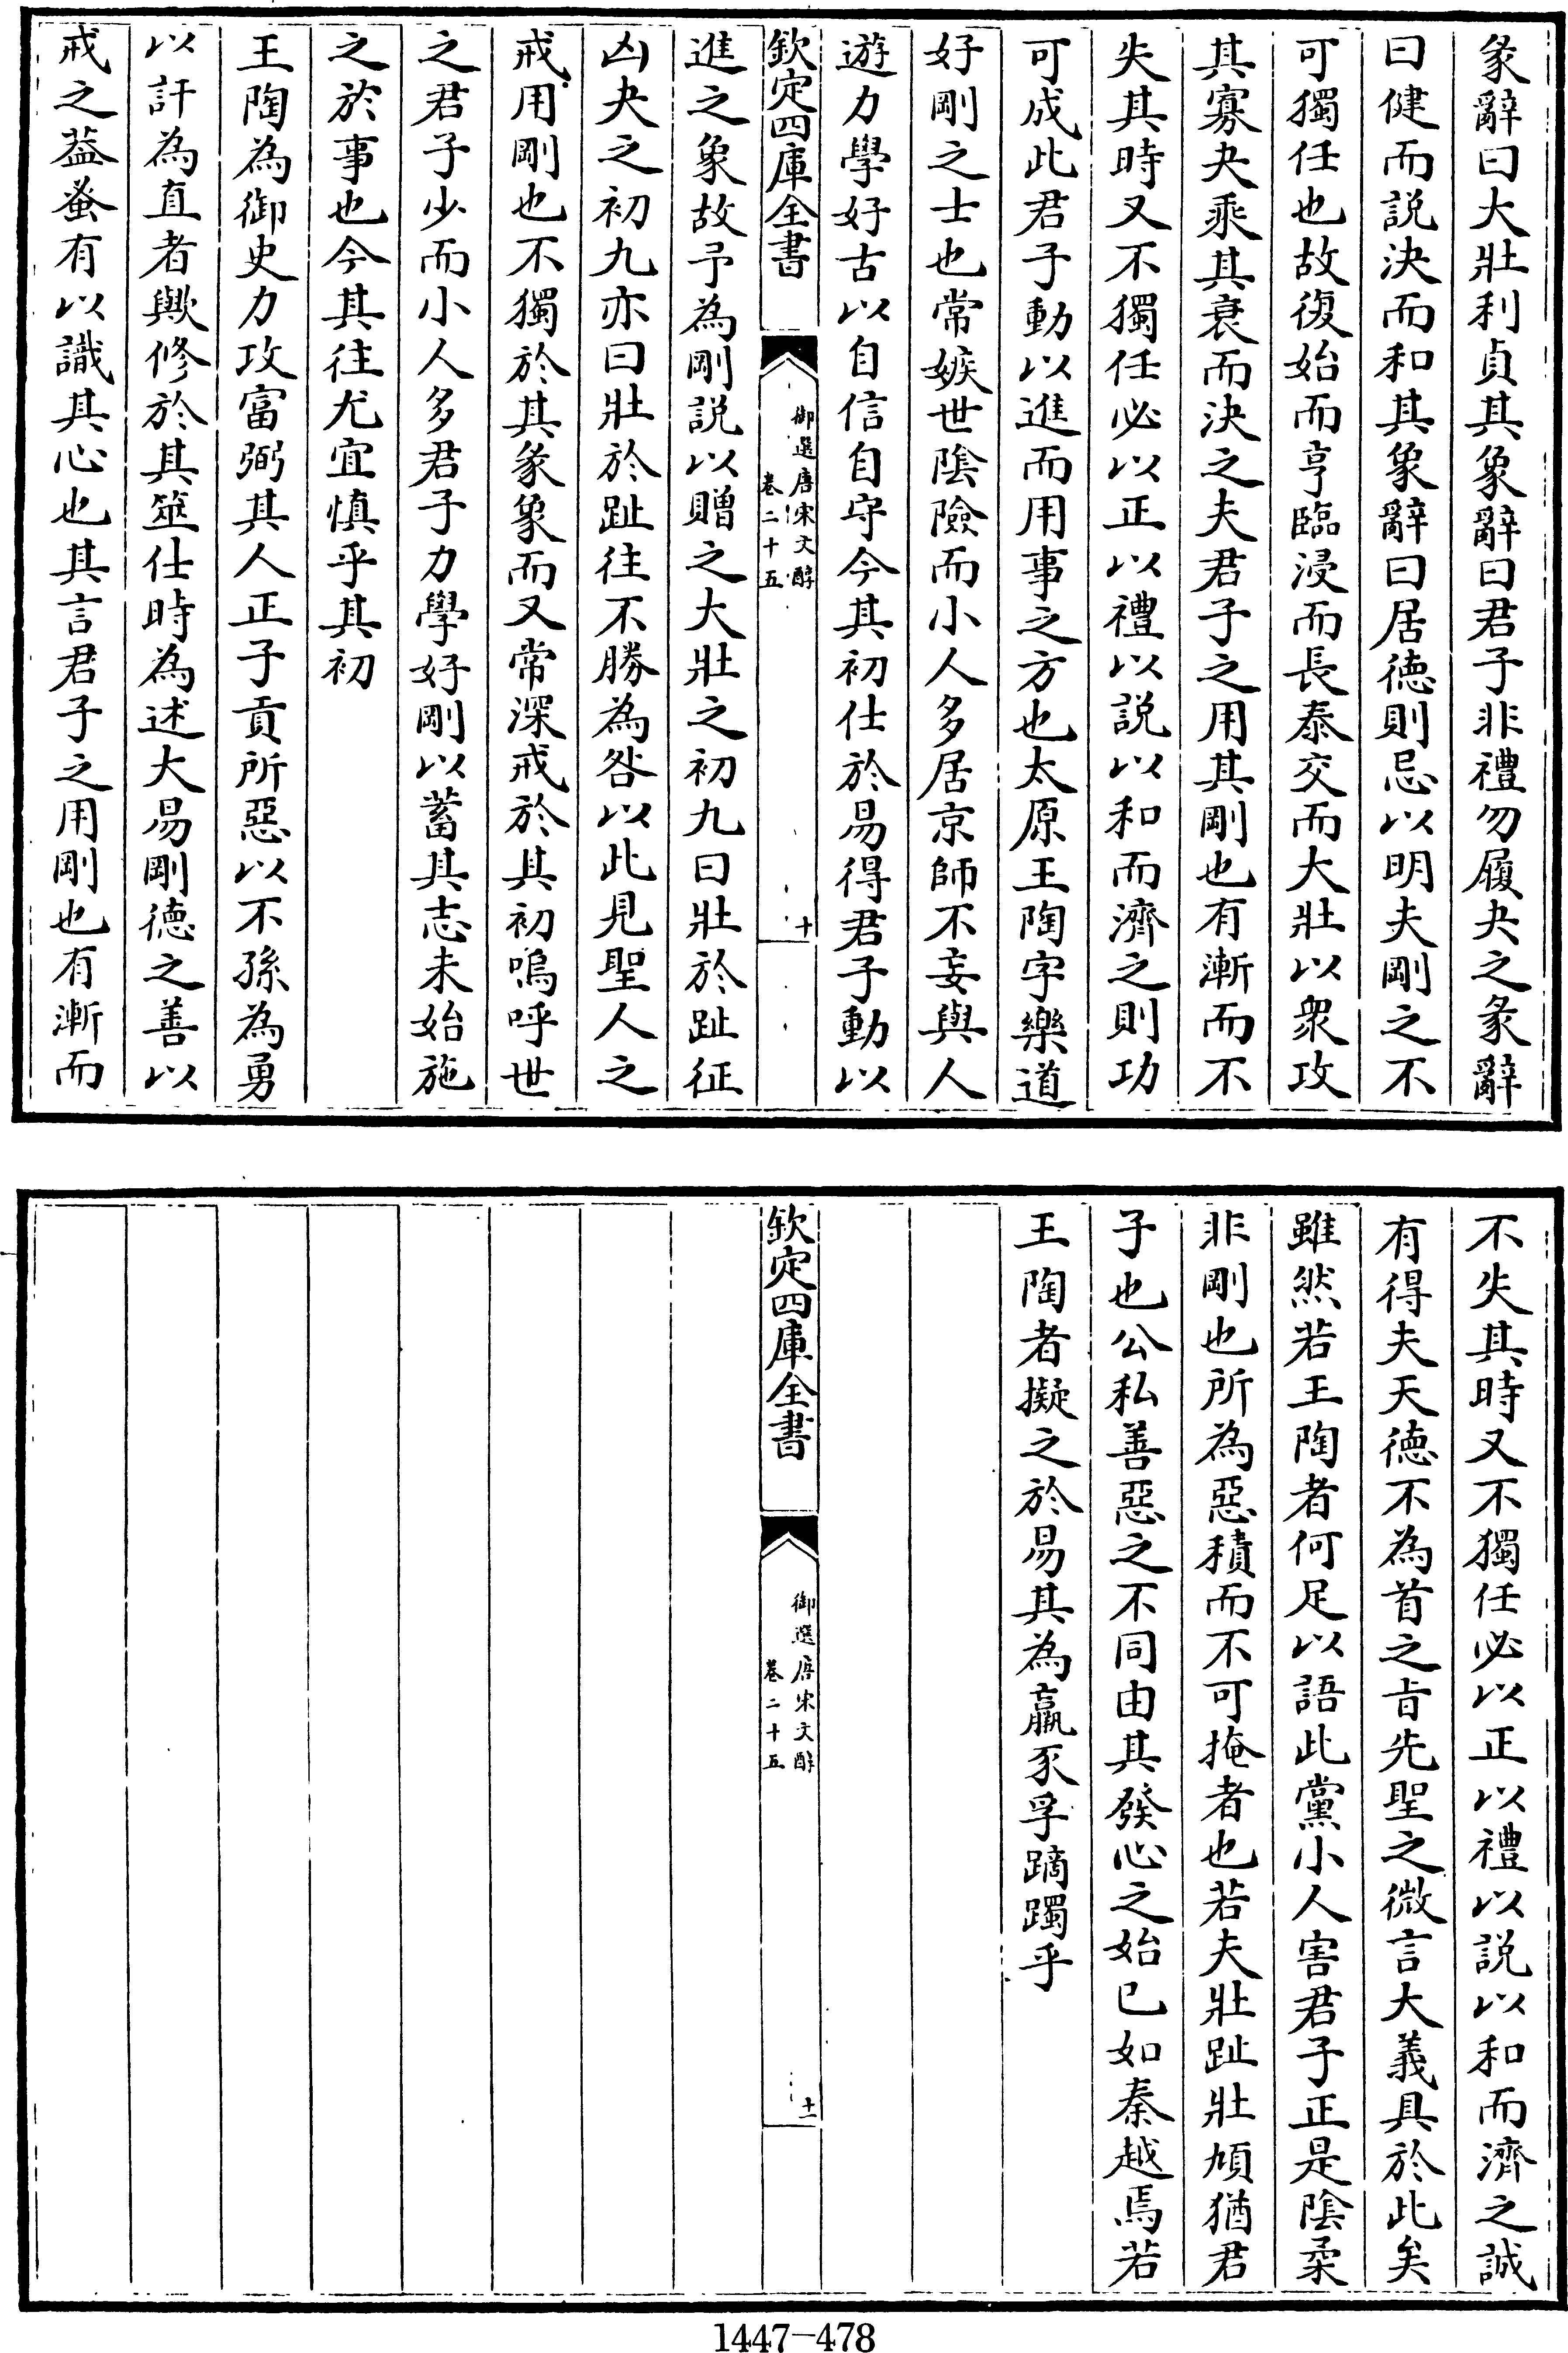 彖辭曰大壯利貞其象辭曰君子非禮勿履夬之彖辭
曰健而説決而和其象辭曰居德則忌以明夫剛之不
可獨任也故復始而亨臨浸而長泰交而大壯以衆攻
其寡夬乘其衰而決之夫君子之用其剛也有漸而不
失其時又不獨任必以正以禮以説以和而濟之則功
可成此君子動以進而用事之方也太原王陶字樂道
好剛之士也常嫉世陰險而小人多居京師不妄與人
遊力學好古以自信自守今其初仕於易得君子動以
欽定四庫全書
御選唐宋文醇
卷二十五
十
進之象故予為剛説以贈之大壯之初九曰壯於趾征
凶夬之初九亦曰壯於趾往不勝為咎以此見聖人之
戒用剛也不獨於其彖象而又常深戒於其初嗚呼世
之君子少而小人多君子力學好剛以蓄其志未始施
之於事也今其往尤宜慎乎其初
王陶為御史力攻富弼其人正子貢所惡以不孫為勇
以訐為直者歟修於其筮仕時為述大易剛德之善以
戒之葢蚤有以識其心也其言君子之用剛也有漸而
不失其時又不獨任必以正以禮以説以和而濟之誠
有得夫天德不為首之㫖先聖之微言大義具於此矣
雖然若王陶者何足以語此黨小人害君子正是陰柔
非剛也所為惡積而不可掩者也若夫壯趾壯頄猶君
子也公私善惡之不同由其發心之始已如秦越焉若
王陶者擬之於易其為羸豕孚蹢躅乎
欽定四庫全書
御選唐宋文醇
卷二十五
十一
1447-478